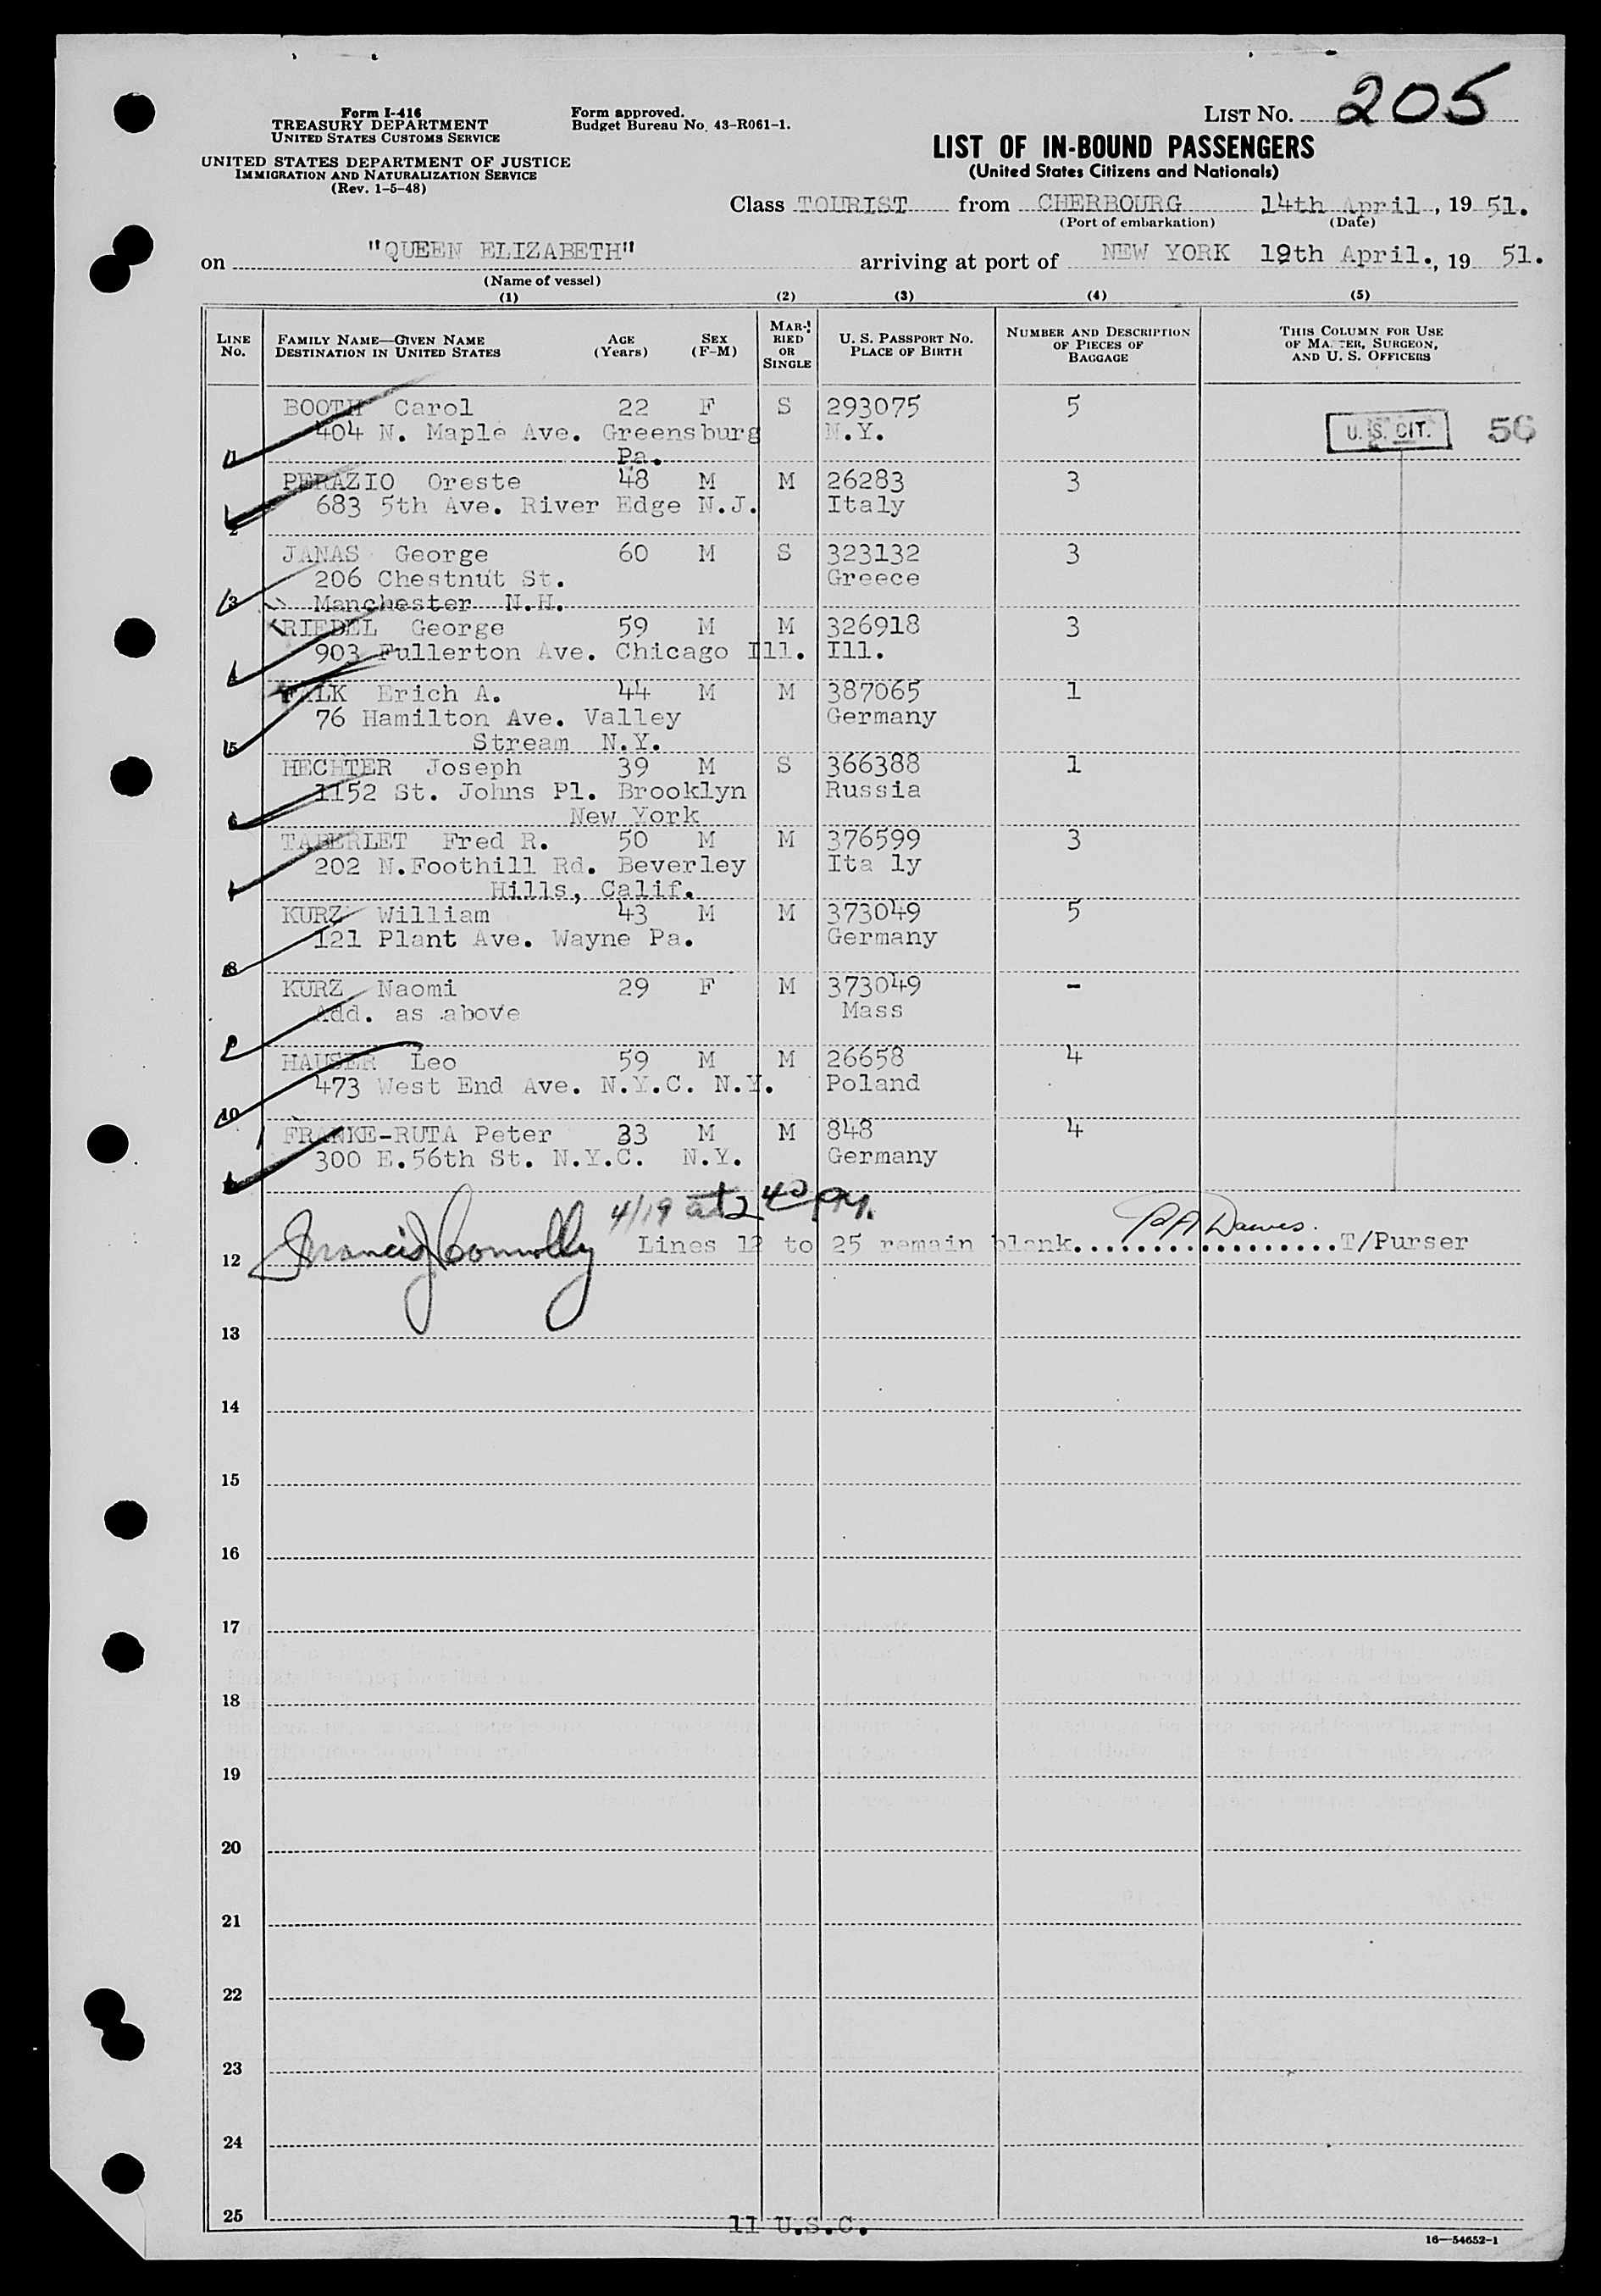 Form I-416
TREASURY DEPARTMENT
UNITED STATES CUSTOMS SERVICE
UNITED STATES DEPARTMENT OF JUSTICE
IMMIGRATION AND NATURALIZATION SERVICE
(Rev. 1-5-48)
Form approved.
Budget Bureau No. 43-R061-1.
LIST No. 205
LIST OF IN-BOUND PASSENGERS
(United States Citizens and Nationals)
Class TOURIST from CHERBOURG 14th April, 19 51.
(Port of embarkation) (Date)
on "QUEEN ELIZABETH" arriving at port of NEW YORK 19th April., 19 51.
(Name of vessel)
(1) (2) (3) (4) (5)
LINE No. FAMILY NAME—GIVEN NAME DESTINATION IN UNITED STATES AGE (Years) SEX (F-M) MARRIED OR SINGLE U. S. PASSPORT No. PLACE OF BIRTH NUMBER AND DESCRIPTION OF PIECES OF BAGGAGE THIS COLUMN FOR USE OF MASTER, SURGEON, AND U. S. OFFICERS
BOOTH Carol 22 F S 293075 5
404 N. Maple Ave. Greensburg N.Y. U. S. CIT. 56
1 Pa.
PERAZIO Oreste 48 M M 26283 3
683 5th Ave. River Edge N.J. Italy
2
JANAS George 60 M S 323132 3
206 Chestnut St. Greece
3 Manchester N.H.
RIEDEL George 59 M M 326918 3
903 Fullerton Ave. Chicago Ill. Ill.
4
FALK Erich A. 44 M M 387065 1
76 Hamilton Ave. Valley Germany
5 Stream N.Y.
HECHTER Joseph 39 M S 366388 1
1152 St. Johns Pl. Brooklyn Russia
6 New York
TABERLET Fred R. 50 M M 376599 3
202 N.Foothill Rd. Beverley Ita ly
Hills, Calif.
KURZ William 43 M M 373049 5
121 Plant Ave. Wayne Pa. Germany
8
KURZ Naomi 29 F M 373049 -
Add. as above Mass
9
HAUSER Leo 59 M M 26658 4
473 West End Ave. N.Y.C. N.Y. Poland
10
FRANKE-RUTA Peter 33 M M 848 4
300 E.56th St. N.Y.C. N.Y. Germany
4/19 at 2 40 PM.
Francis J Connolly
12 Lines 12 to 25 remain blank..................T/Purser
Dawes.
13
14
15
16
17
18
19
20
21
22
23
24
25
11 U.S.C.
16—54652-1